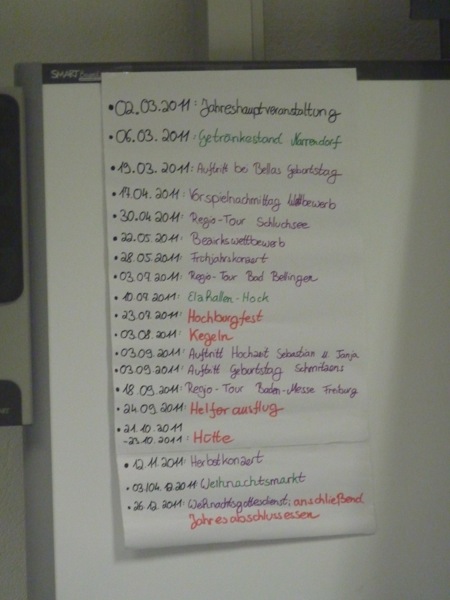 SMART
• 02.03.2011: Jahreshauptveranstaltung
• 06.03.2011: Getränkestand Narrendorf
• 19.03.2011: Auftritt bei Bellas Geburtstag
• 17.04.2011: Vorspielnachmittag Wettbewerb
• 30.04.2011: Regio-Tour Schluchsee
• 22.05.2011: Bezirkswettbewerb
• 28.05.2011: Frühjahrskonzert
• 03.07.2011: Regio-Tour Bad Bellingen
• 10.07.2011: Hock
• 23.07.2011: Hochburgfest
• 03.08.2011: Kegeln
• 03.09.2011: Auftritt Hochzeit Sebastian u. Tanja
• 03.09.2011: Auftritt Geburtstag
• 18.09.2011: Regio-Tour Baden-Messe Freiburg
• 24.09.2011: Helferausflug
• 21.10.2011
-23.10.2011: Hütte
• 12.11.2011: Herbstkonzert
• 03./04.12.2011: Weihnachtsmarkt
• 26.12.2011: Weihnachtsgottesdienst, anschließend
Jahresabschlussessen